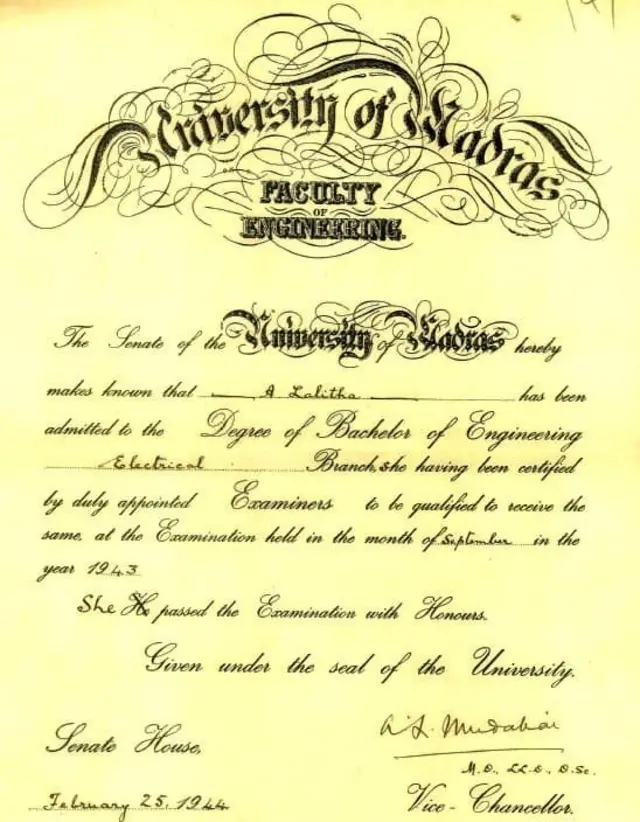 University of Madras
FACULTY
OF
ENGINEERING.
The Senate of the University of Madras hereby
makes known that A Lalitha has been
admitted to the Degree of Bachelor of Engineering
Electrical Branch, she having been certified
by duly appointed Examiners to be qualified to receive the
same, at the Examination held in the month of September in the
year 1943
She He passed the Examination with Honours.
Given under the seal of the University.
A L Mudaliar
Senate House,
M.D., LL.D., D.Sc.
February 25, 1944 Vice-Chancellor.